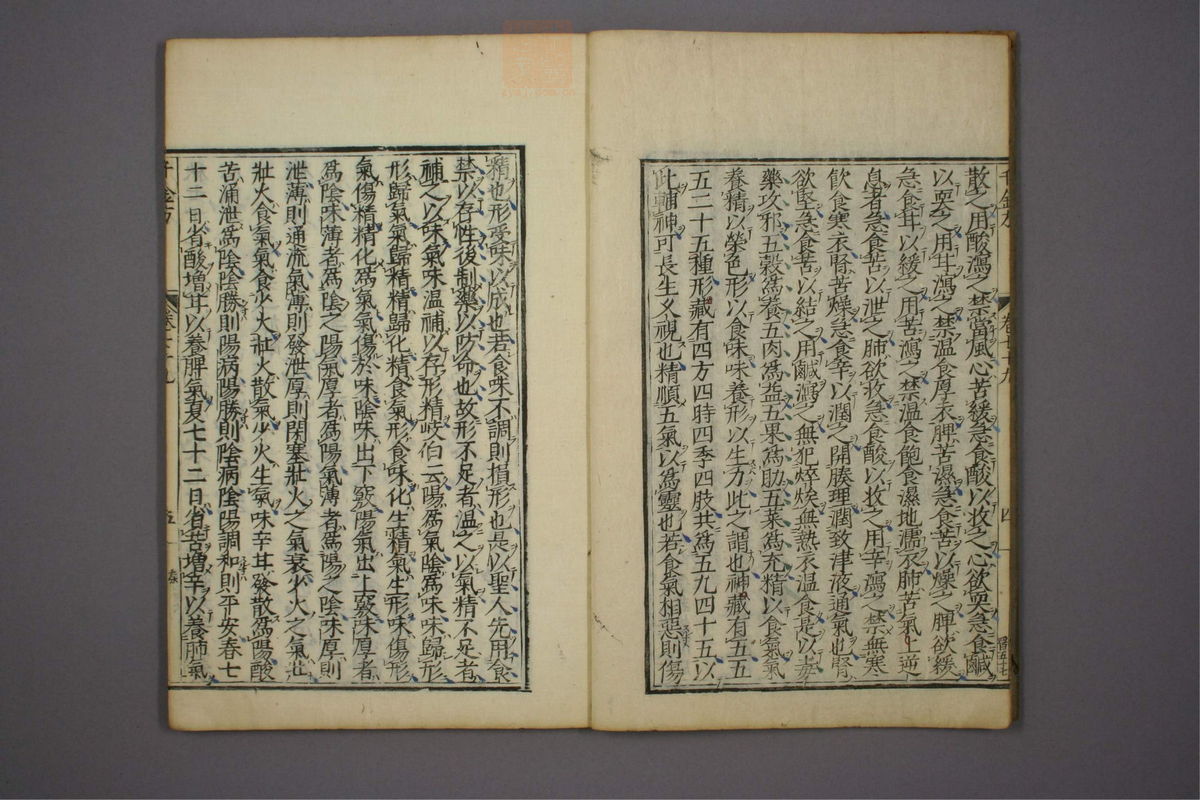 散之用酸瀉之禁當風心苦緩急食酸以收之心欲耎急食鹹
以耎之用甘瀉之禁温食厚衣脾苦濕急食苦以燥之脾欲緩
急食甘以緩之用苦瀉之禁温食飽食濕地濡衣肺苦氣上逆
息者急食苦以泄之肺欲收急食酸以收之用辛瀉之禁無寒
飲食寒衣腎苦燥急食辛以潤之開腠理潤致津液通氣也腎
欲堅急食苦以結之用鹹瀉之無犯焠㶼無熱衣温食是以毒
藥攻邪五穀爲養五肉爲益五果爲助五菜爲充精以食氣氣
養精以榮色形以食味味養形以生力此之謂也神藏有五五
五二十五種形藏有四方四時四季四肢共爲五九四十五以
此輔神可長生乆視也精順五氣以爲靈也若食氣相惡則傷
千金方 卷二十九 四
精也形受味以成也若食味不調則損形也是以聖人先用食
禁以存性後制藥以防命也故形不足者温之以氣精不足者
補之以味氣味温補以存形精岐伯云陽爲氣陰爲味味歸形
形歸氣氣歸精精歸化精食氣形食味化生精氣生形味傷形
氣傷精精化爲氣氣傷於味陰味出下竅陽氣出上竅味厚者
爲陰味薄者爲陰之陽氣厚者爲陽氣薄者爲陽之陰味厚則
泄薄則通流氣薄則發泄厚則閉塞壯火之氣衰少火之氣壯
壯火食氣氣食少火壯火散氣少火生氣味辛甘發散爲陽酸
苦涌泄爲陰陰勝則陽病陽勝則陰病陰陽調和則平安春七
十二日省酸增甘以養脾氣夏七十二日省苦增辛以養肺氣
千金方 卷二十九 五